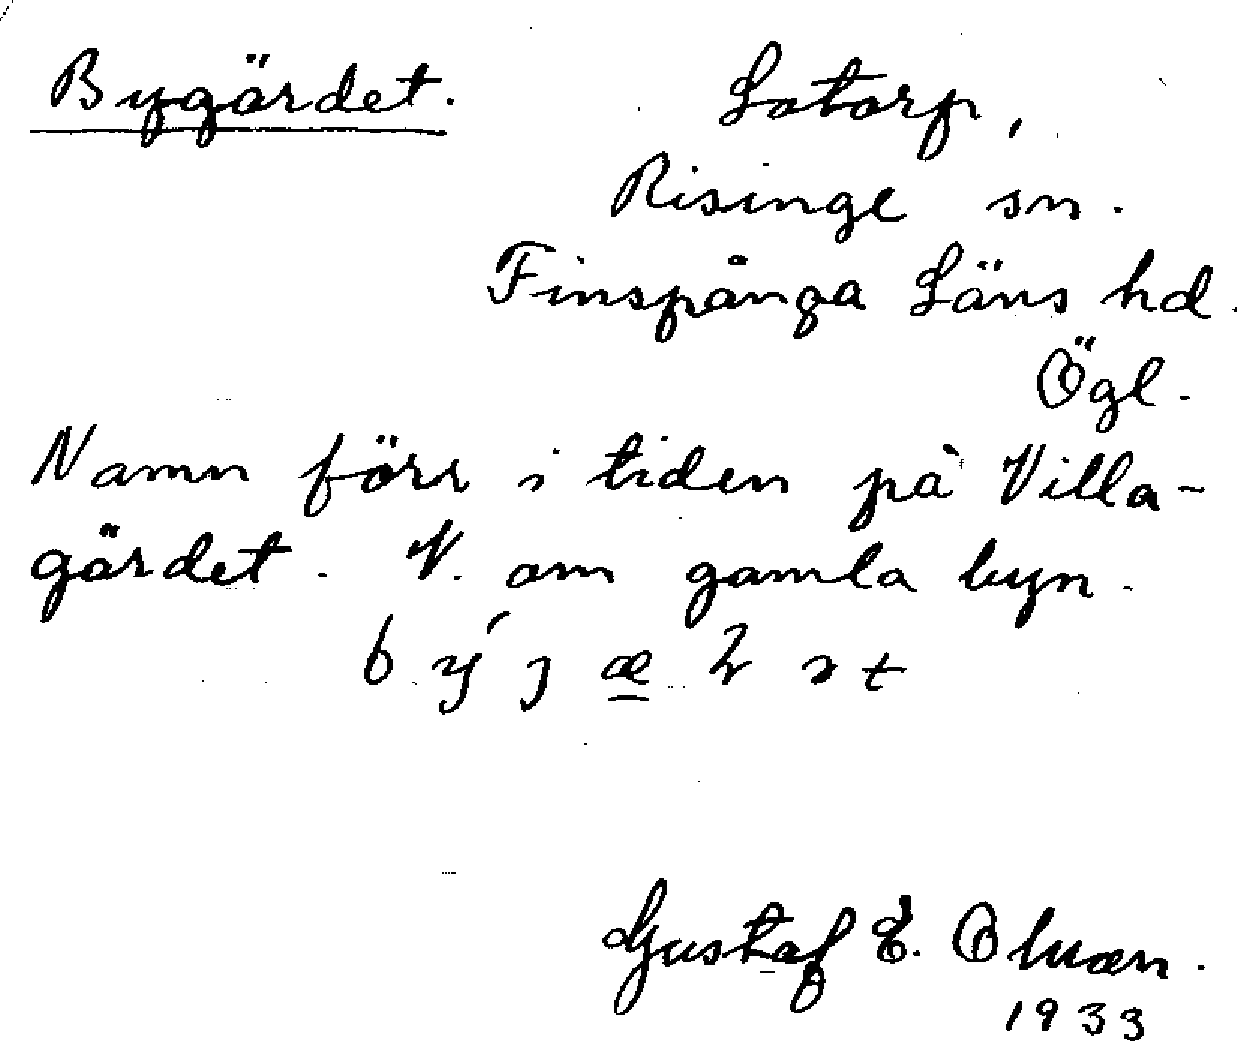 Bygärdet. Lotorp,
Risinge sn.
Finspånga Läns hd.
Ögl.
Namn förr i tiden på Villa-
gärdet. N. om gamla byn.
Gustaf E.
1933